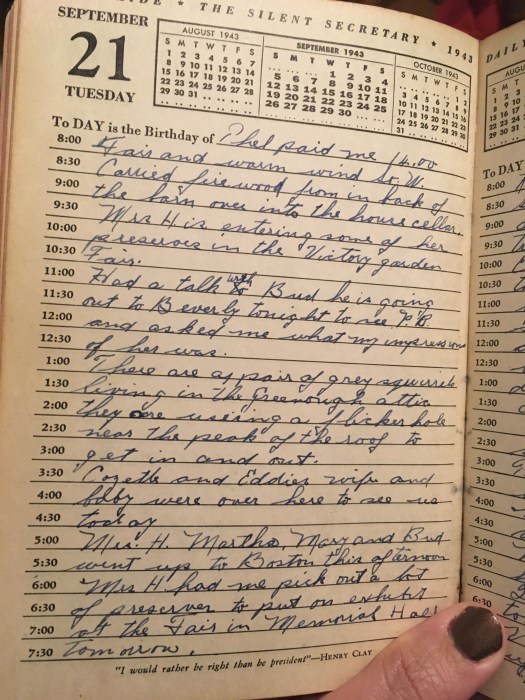 IDE * THE SILENT SECRETARY * 1943
SEPTEMBER
21
TUESDAY
AUGUST 1943
S M T W T F S
1 2 3 4 5 6 7
8 9 10 11 12 13 14
15 16 17 18 19 20 21
22 23 24 25 26 27 28
29 30 31
SEPTEMBER 1943
S M T W T F S
1 2 3 4
5 6 7 8 9 10 11
12 13 14 15 16 17 18
19 20 21 22 23 24 25
26 27 28 29 30
OCTOBER 1943
S M T W T F S
1 2
3 4 5 6 7 8 9
10 11 12 13 14 15 16
17 18 19 20 21 22 23
24 25 26 27 28 29 30
31
To DAY is the Birthday of Phel paid me 14.00
8:00 Fair and warm wind So. W.
8:30 Carried fire wood from in back of
9:00 the barn over into the house cellar.
9:30 Mrs H is entering some of her
10:00 preserves in the Victory garden
10:30 Fair.
11:00 Had a talk with Bud he is going
11:30 out to Beverly tonight to see P.B.
12:00 and asked me what my impression
12:30 of her was.
1:00 There are a pair of grey squirrels
1:30 living in the Greenough attic
2:00 they are useing a flicker hole
2:30 near the peak of the roof to
3:00 get in and out.
3:30 Cozette and Eddies wife and
4:00 baby were over here to see us
4:30 today
5:00 Mrs. H. Martha, Mary and Bud
5:30 went up to Boston this afternoon
6:00 Mrs H had me pick out a lot
6:30 of preserves to put on exhibit
7:00 at the Fair in Memorial Hall
7:30 tomorrow.
"I would rather be right than be president"—HENRY CLAY
DAILY
AUGU
S M T
To DAY
8:00
8:30
9:00
9:30
10:00
10:30
11:00
11:30
12:00
12:30
1:00
1:30
2:00
2:30
3:00
3:30
4:00
4:30
5:00
5:30
6:00
6:30